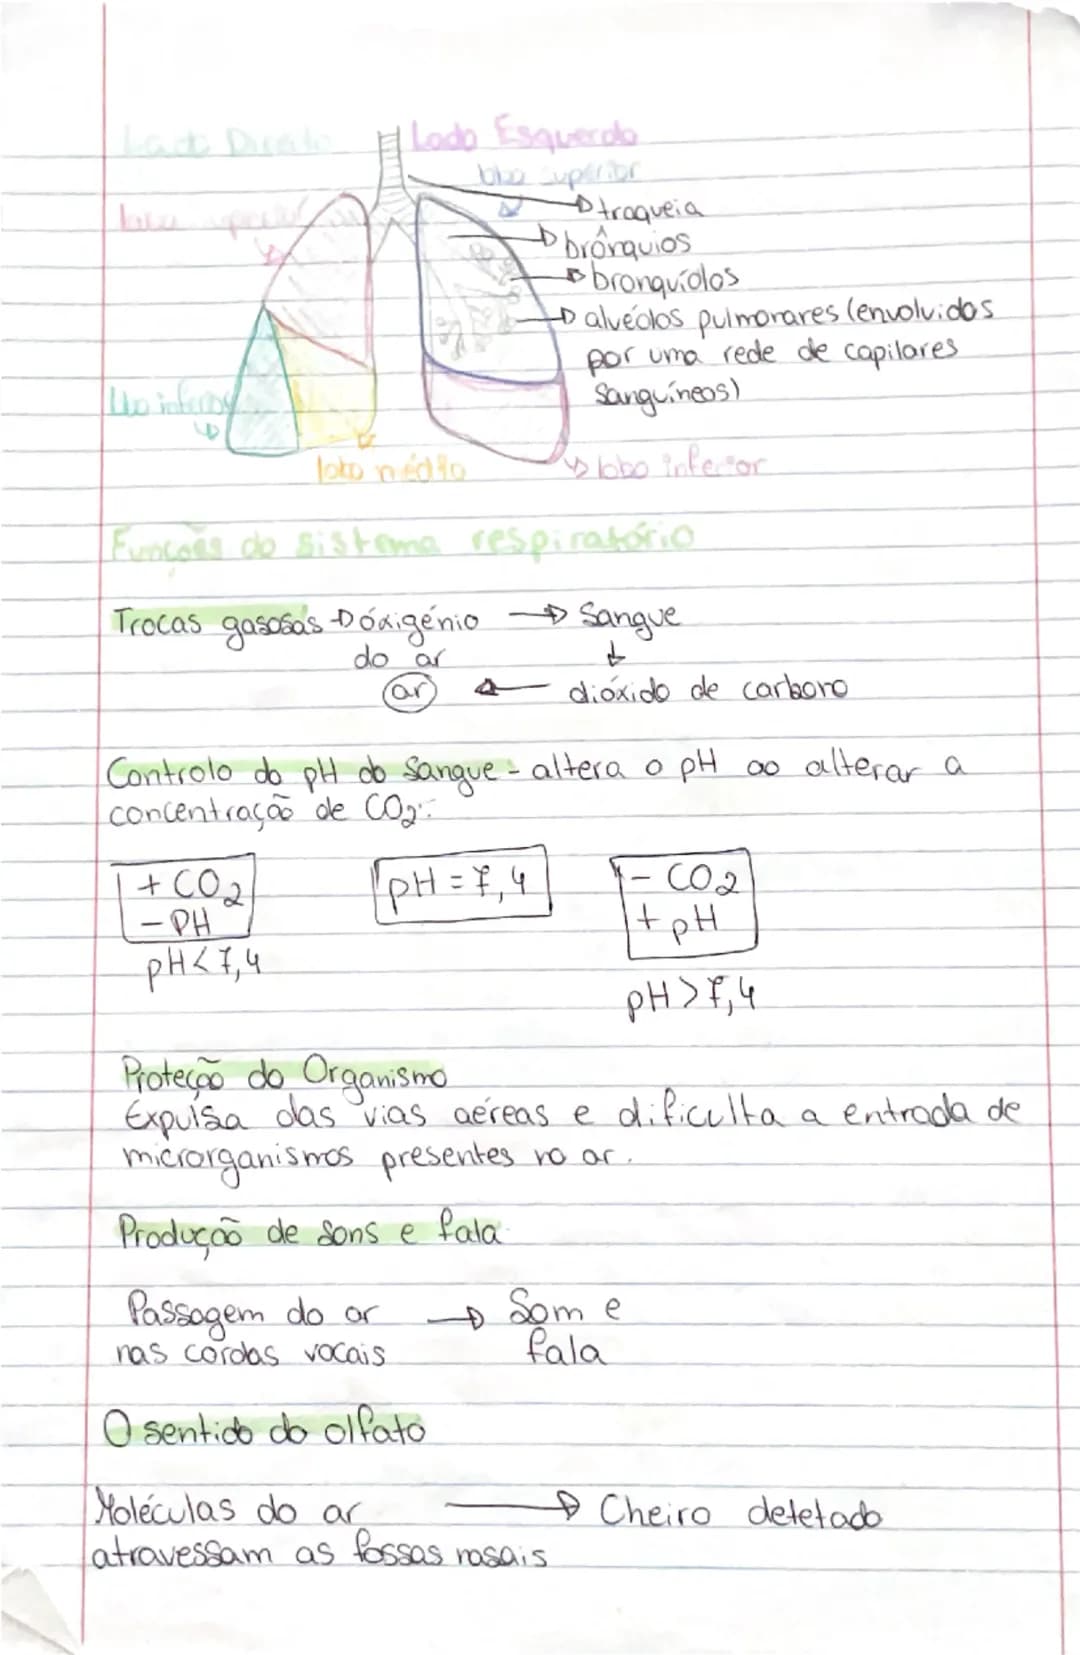 Lado Direito
Lado Esquerdo
lobo superior
lobo superior
traqueia
brônquios
bronquíolos
alvéolos pulmonares (envolvidos
por uma rede de capilares
sanguíneos)
lobo inferior
lobo médio
lobo inferior
Funções do sistema respiratório
Trocas gasosas → óxigénio → Sangue
do ar ↓
ar ← dióxido de carbono
Controlo do pH do sangue - altera o pH ao alterar a
concentração de CO2:
+ CO2
- PH
pH<7,4
pH = 7,4
- CO2
+ pH
pH>7,4
Proteção do Organismo
Expulsa das vias aéreas e dificulta a entrada de
microrganismos presentes no ar.
Produção de sons e fala
Passagem do ar → Som e
nas cordas vocais fala
O sentido do olfato
Moléculas do ar → Cheiro detetado
atravessam as fossas nasais